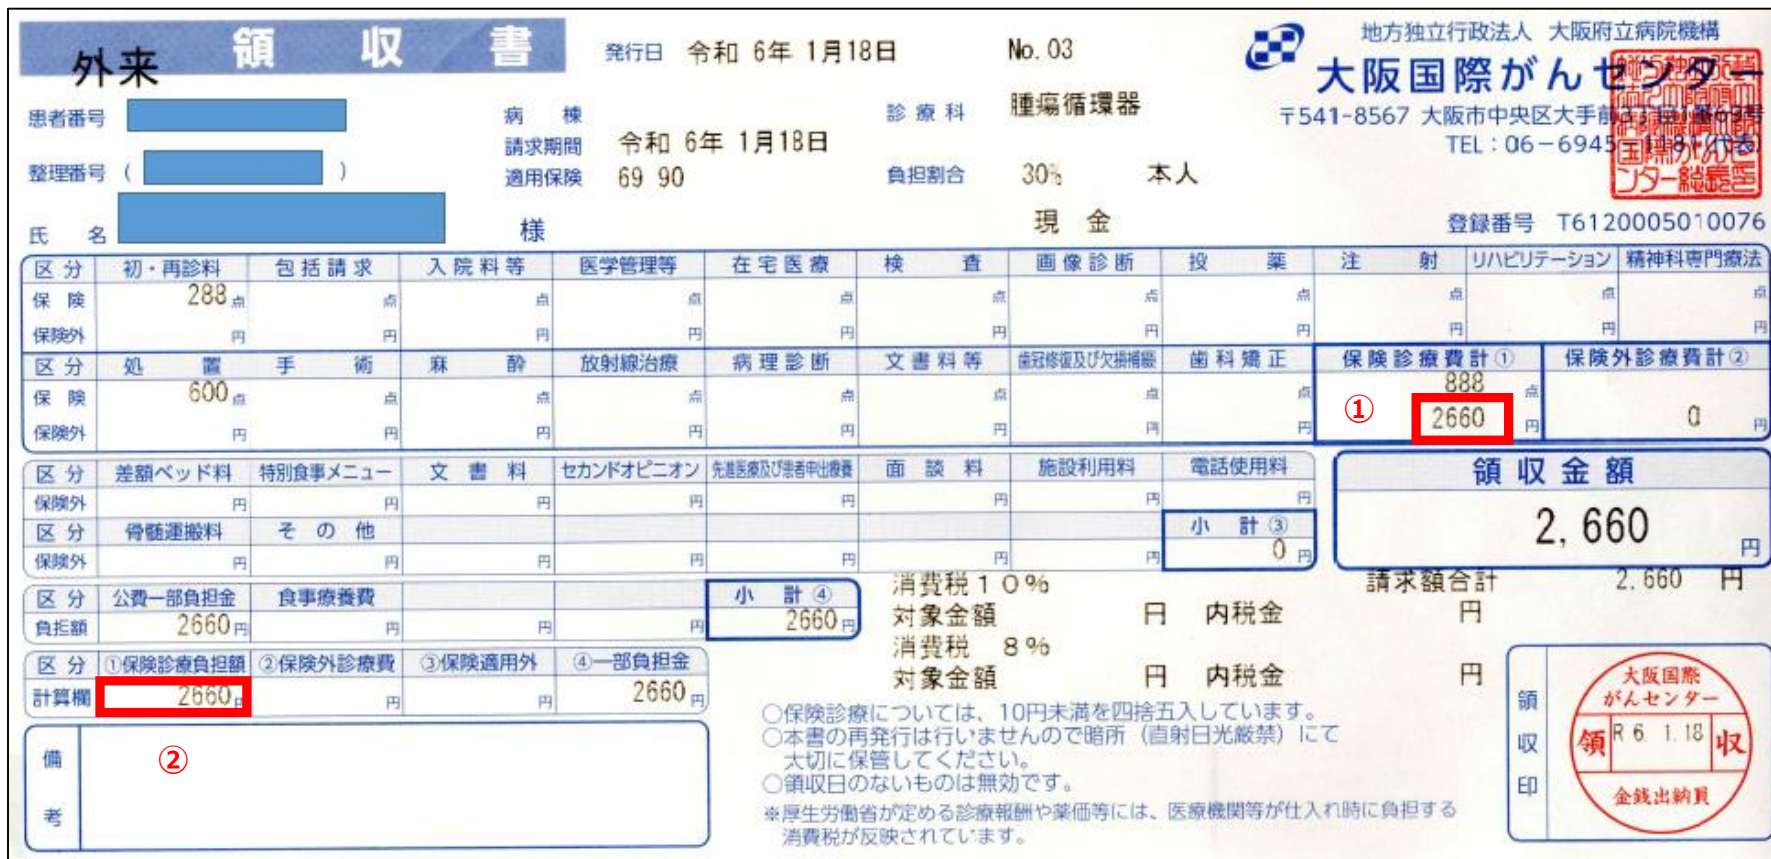 外来 領収書
発行日 令和 6年 1月18日 No. 03
地方独立行政法人 大阪府立病院機構
大阪国際がんセンター
〒541-8567 大阪市中央区大手前
TEL：06－6945
患者番号
病棟
診療科 腫瘍循環器
請求期間 令和 6年 1月18日
整理番号 ( )
適用保険 69 90
負担割合 30% 本人
氏名 様
現金
登録番号 T6120005010076
区分 初・再診料 包括請求 入院料等 医学管理等 在宅医療 検査 画像診断 投薬 注射 リハビリテーション 精神科専門療法
保険 288点 点 点 点 点 点 点 点 点 点 点
保険外 円 円 円 円 円 円 円 円 円 円 円
区分 処置 手術 麻酔 放射線治療 病理診断 文書料等 歯冠修復及び欠損補綴 歯科矯正 保険診療費計① 保険外診療費計②
保険 600点 点 点 点 点 点 点 点 888点
保険外 円 円 円 円 円 円 円 円 ① 2660円 0円
区分 差額ベッド料 特別食事メニュー 文書料 セカンドオピニオン 先進医療及び患者申出療養 面談料 施設利用料 電話使用料 領収金額
保険外 円 円 円 円 円 円 円 円
2,660円
区分 骨髄運搬料 その他 小計③
保険外 円 円 円 円 円 円 円 0円
請求額合計 2,660 円
区分 公費一部負担金 食事療養費 小計④
負担額 2660円 円 円 円 2660円
消費税10%
対象金額 円 内税金 円
消費税 8%
対象金額 円 内税金 円
区分 ①保険診療負担額 ②保険外診療費 ③保険適用外 ④一部負担金
計算欄 2660円 円 円 2660円
②
備考
○保険診療については、10円未満を四捨五入しています。
○本書の再発行は行いませんので暗所（直射日光厳禁）にて
大切に保管してください。
○領収日のないものは無効です。
※厚生労働省が定める診療報酬や薬価等には、医療機関等が仕入れ時に負担する
消費税が反映されています。
領収印
大阪国際
がんセンター
領 R 6. 1. 18 収
金銭出納員